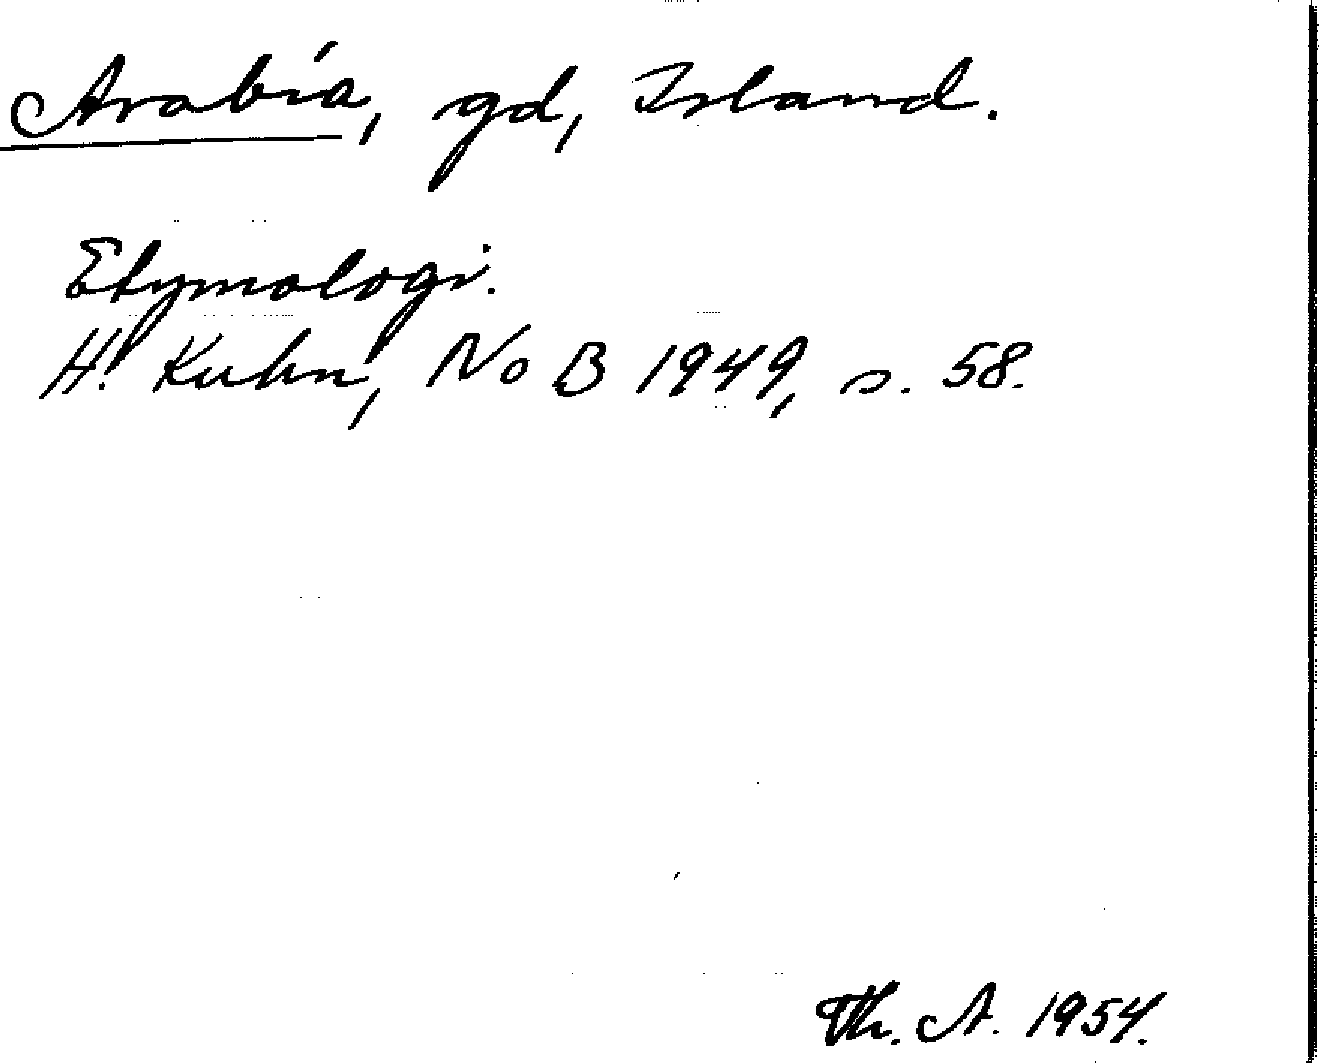 Arabía, gd, Island.
Etymologi.
H. Kuhn, NoB 1949, s. 58.
Th. A. 1954.